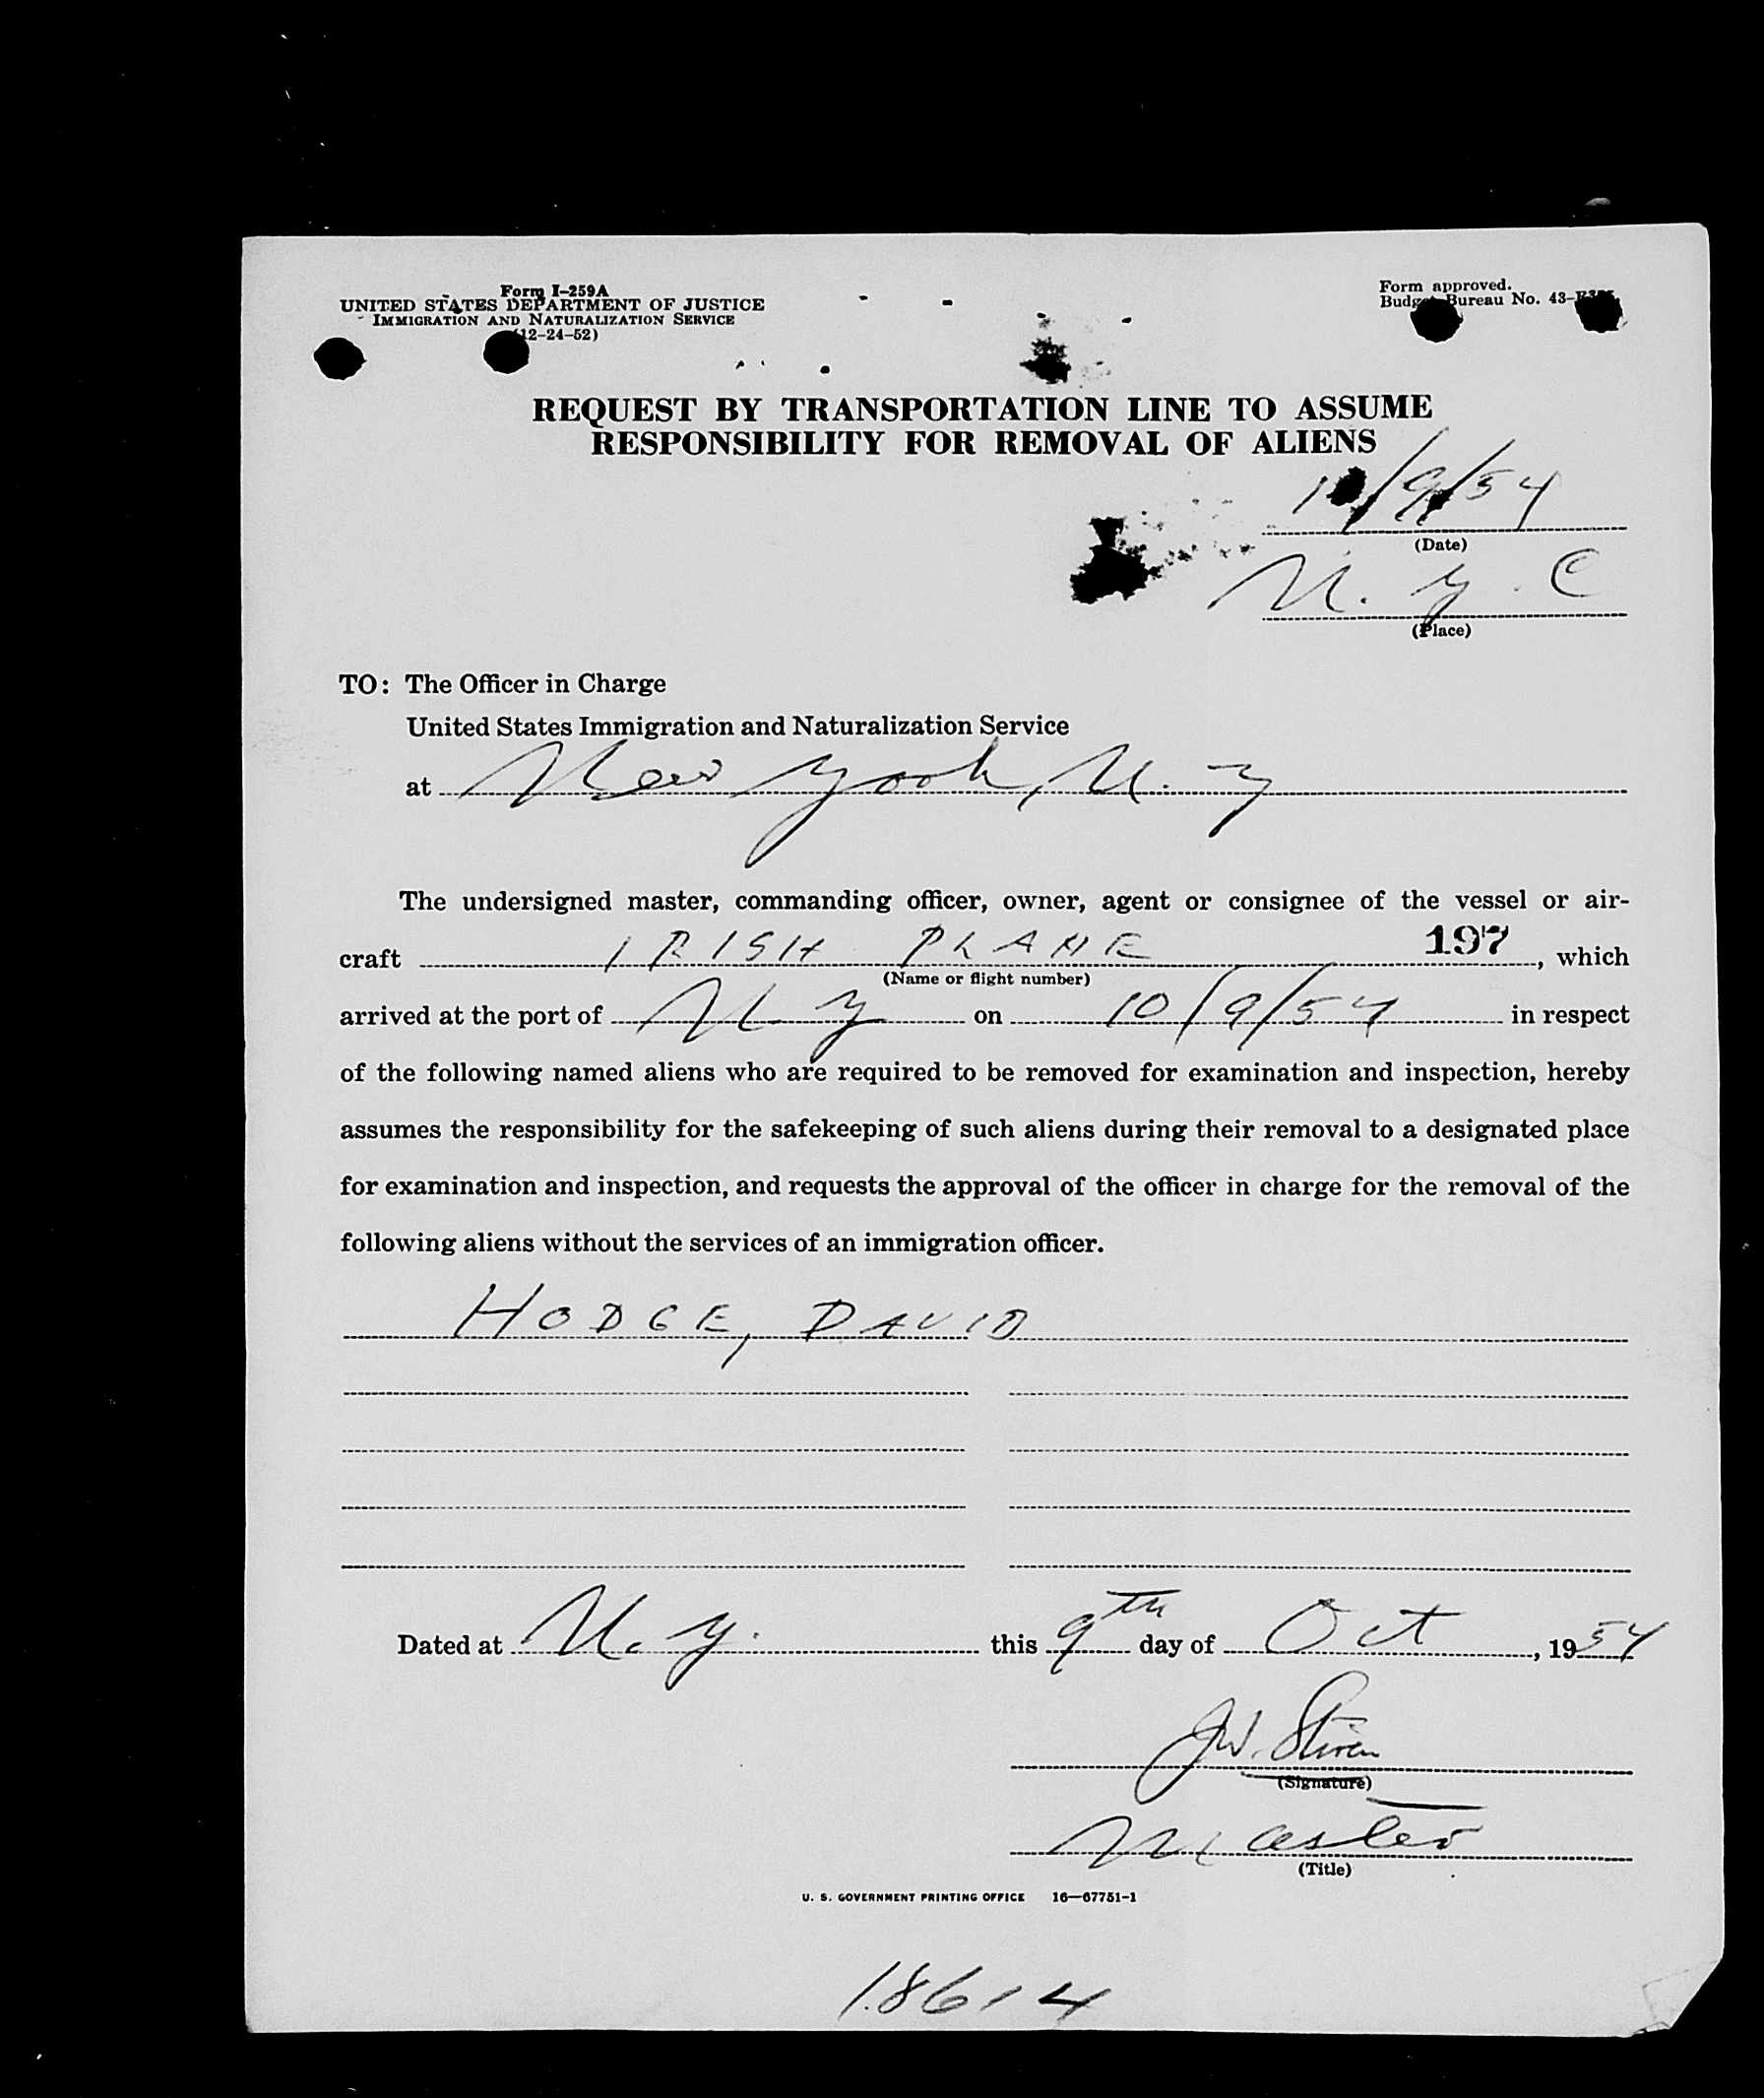 Form I-259A
UNITED STATES DEPARTMENT OF JUSTICE
IMMIGRATION AND NATURALIZATION SERVICE
12-24-52)
Form approved.
Budget Bureau No. 43-
REQUEST BY TRANSPORTATION LINE TO ASSUME
RESPONSIBILITY FOR REMOVAL OF ALIENS
10/9/54
(Date)
N. Y. C
(Place)
TO: The Officer in Charge
United States Immigration and Naturalization Service
at New York, N. Y
The undersigned master, commanding officer, owner, agent or consignee of the vessel or air-
craft IRISH PLANE 197, which
(Name or flight number)
arrived at the port of N Y on 10/9/54 in respect
of the following named aliens who are required to be removed for examination and inspection, hereby
assumes the responsibility for the safekeeping of such aliens during their removal to a designated place
for examination and inspection, and requests the approval of the officer in charge for the removal of the
following aliens without the services of an immigration officer.
HODGE, DAVID
Dated at N. Y. this 9th day of Oct, 1954
J.W.
(Signature)
Master
(Title)
U. S. GOVERNMENT PRINTING OFFICE 16—67751-1